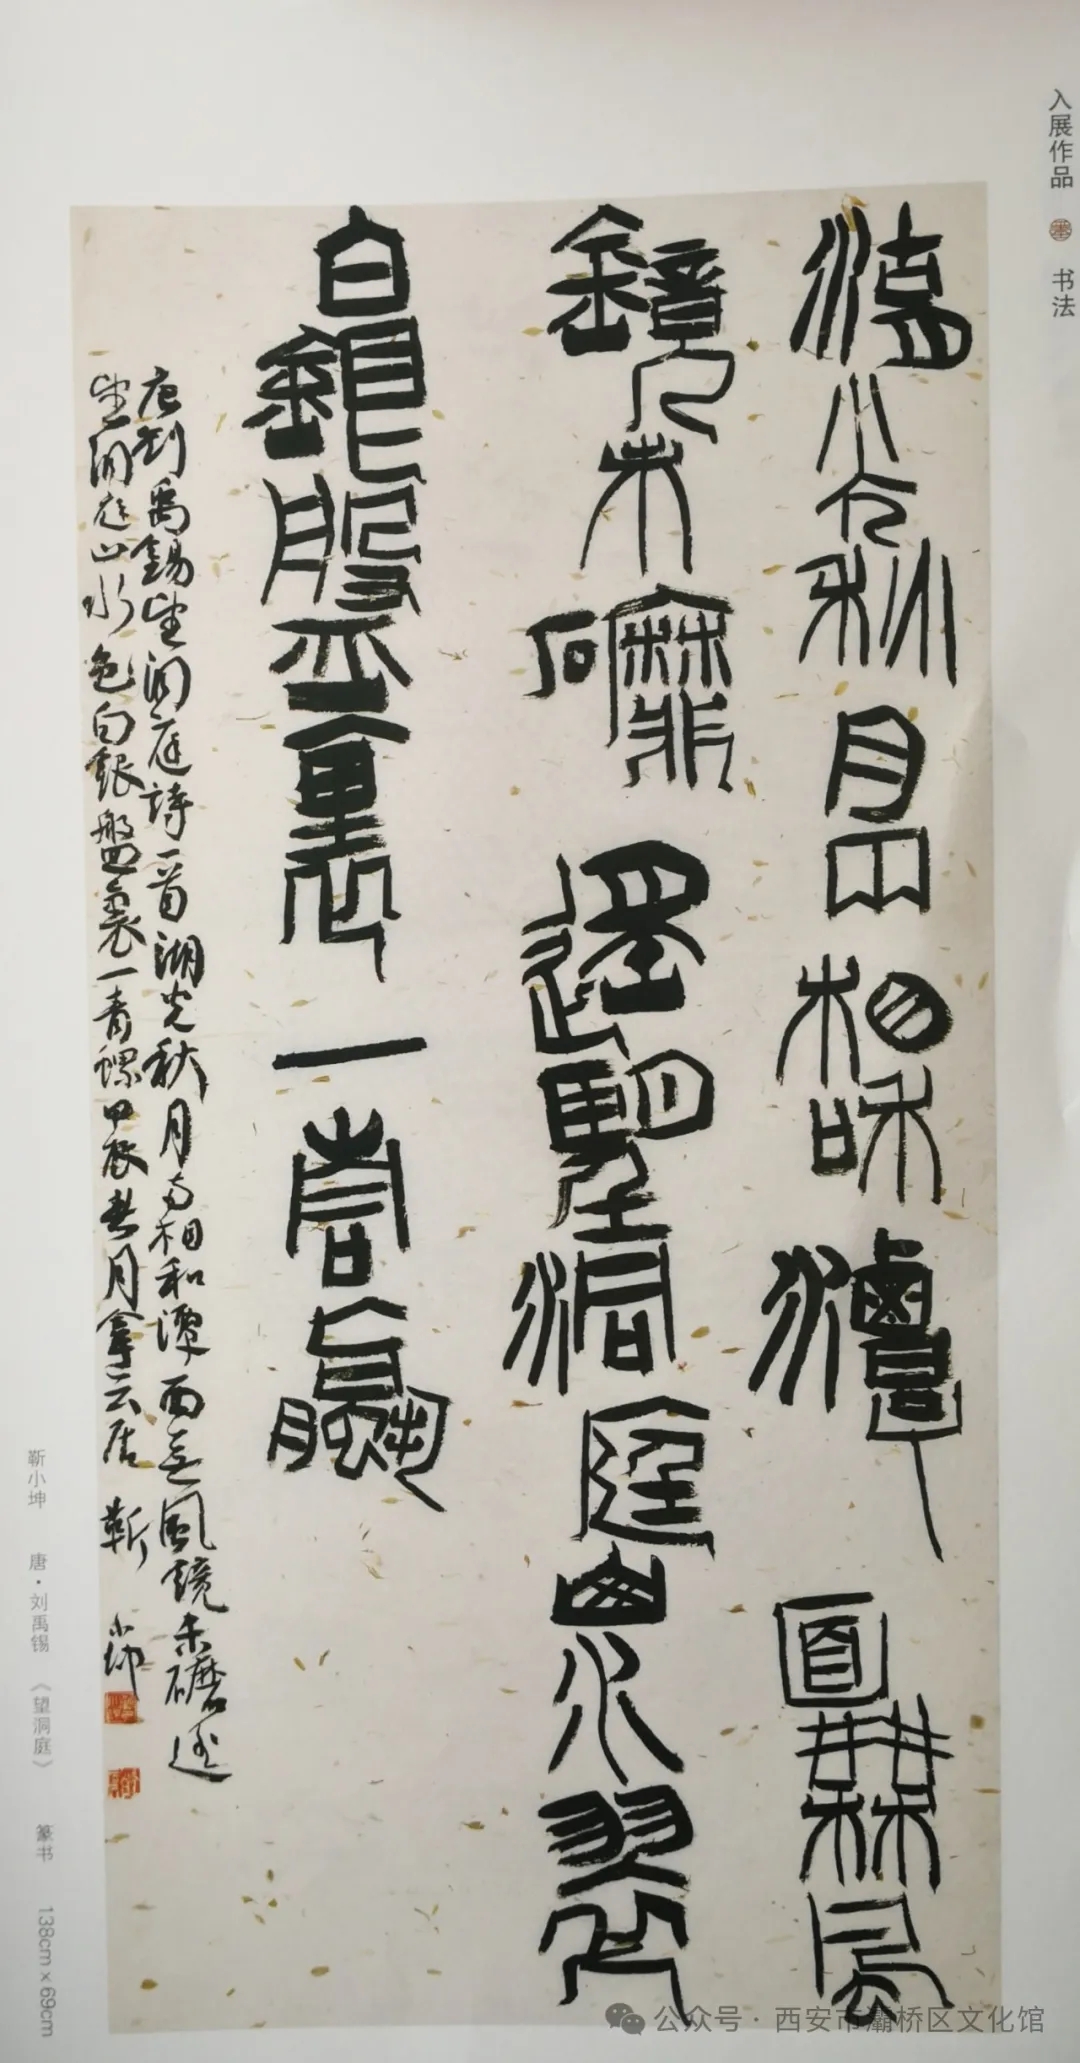 入展作品 书法
湖光秋月兩相和潭面無風
鏡未磨遥望洞庭山水翠
白銀盤裏一青螺
唐劉禹錫望洞庭詩一首湖光秋月两相和潭面无風鏡未磨遥
望洞庭山水色白銀盤裏一青螺甲辰春月拿云居靳小坤
靳小坤 唐·刘禹锡《望洞庭》 篆书 138cm×69cm
公众号·西安市灞桥区文化馆